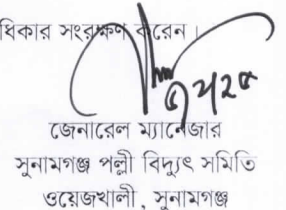 ধিকার সংরক্ষণ করেন।
জেনারেল ম্যানেজার
সুনামগঞ্জ পল্লী বিদ্যুৎ সমিতি
ওয়েজখালী, সুনামগঞ্জ